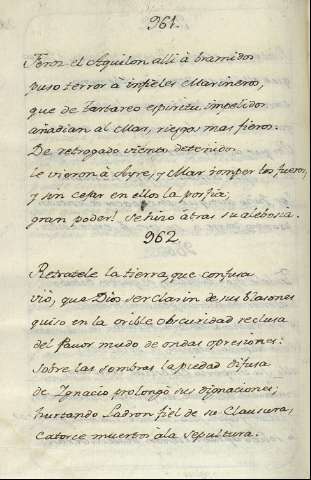 961.
Feroz el Aquilon alli à bramidos
puso terror à infieles Marineros,
que de tartareo espiritu impelidos
añadian al Mar, riesgos mas fieros.
De retrogado viento detenidos
le vieron à Ayre, y Mar romper los fueros,
y sin cesar en ellos la porfia;
gran poder! se hizo atras su alebosia.
962.
Retratele la tierra, que confusa
viò, que Dios ser clarin de sus blasones
quiso en la orible obscuridad reclusa
del pavor mudo de ondas opresiones:
sobre las sombras la piedad difusa
de Ignacio prolongò sus dignaciones;
hurtando Ladron fiel de su Clausura,
catorce muertos à la sepultura.